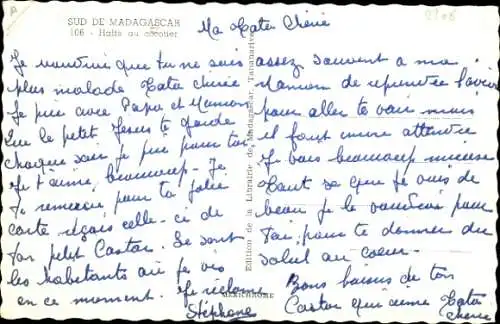 SUD DE MADAGASCAR
106 - Halte au cocotier
Ma Tata Chérie
Je voudrai que tu ne sois
plus malade Tata chérie
Je prie avec Papa et Maman
que le petit Jésus te garde
chaque soir je prie pour toi
Je t'aime beaucoup - Je
te remercie pour ta jolie
carte reçois celle-ci de
ton petit Castor. Ce sont
les habitants où je vis
en ce moment. Je réclame
Stéphane
assez souvent à ma
Maman de reprendre l'avion
pour aller te voir mais
il faut encore attendre
Je vais beaucoup mieux
Tout ce que je vois de
beau je le voudrais pour
toi, pour te donner du
soleil au coeur
Bons baisers de ton
Castor qui aime Tata
chérie
Edition de la Librairie de Madagascar, Tananarive
MEXICHROME